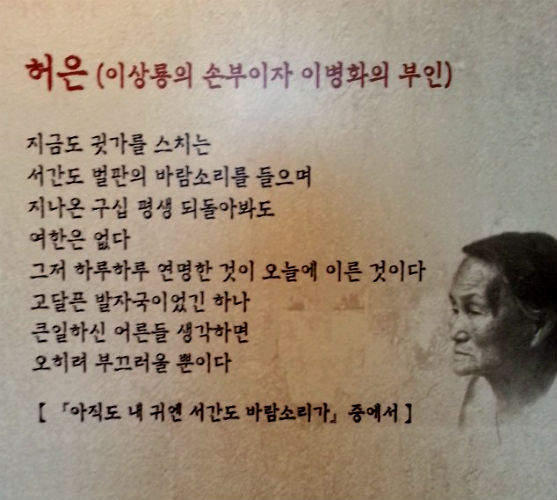 허은 (이상룡의 손부이자 이병화의 부인)
지금도 귓가를 스치는
서간도 벌판의 바람소리를 들으며
지나온 구십 평생 되돌아봐도
여한은 없다
그저 하루하루 연명한 것이 오늘에 이른 것이다
고달픈 발자국이었긴 하나
큰일하신 어른들 생각하면
오히려 부끄러울 뿐이다
[ 『아직도 내 귀엔 서간도 바람소리가』 중에서 ]